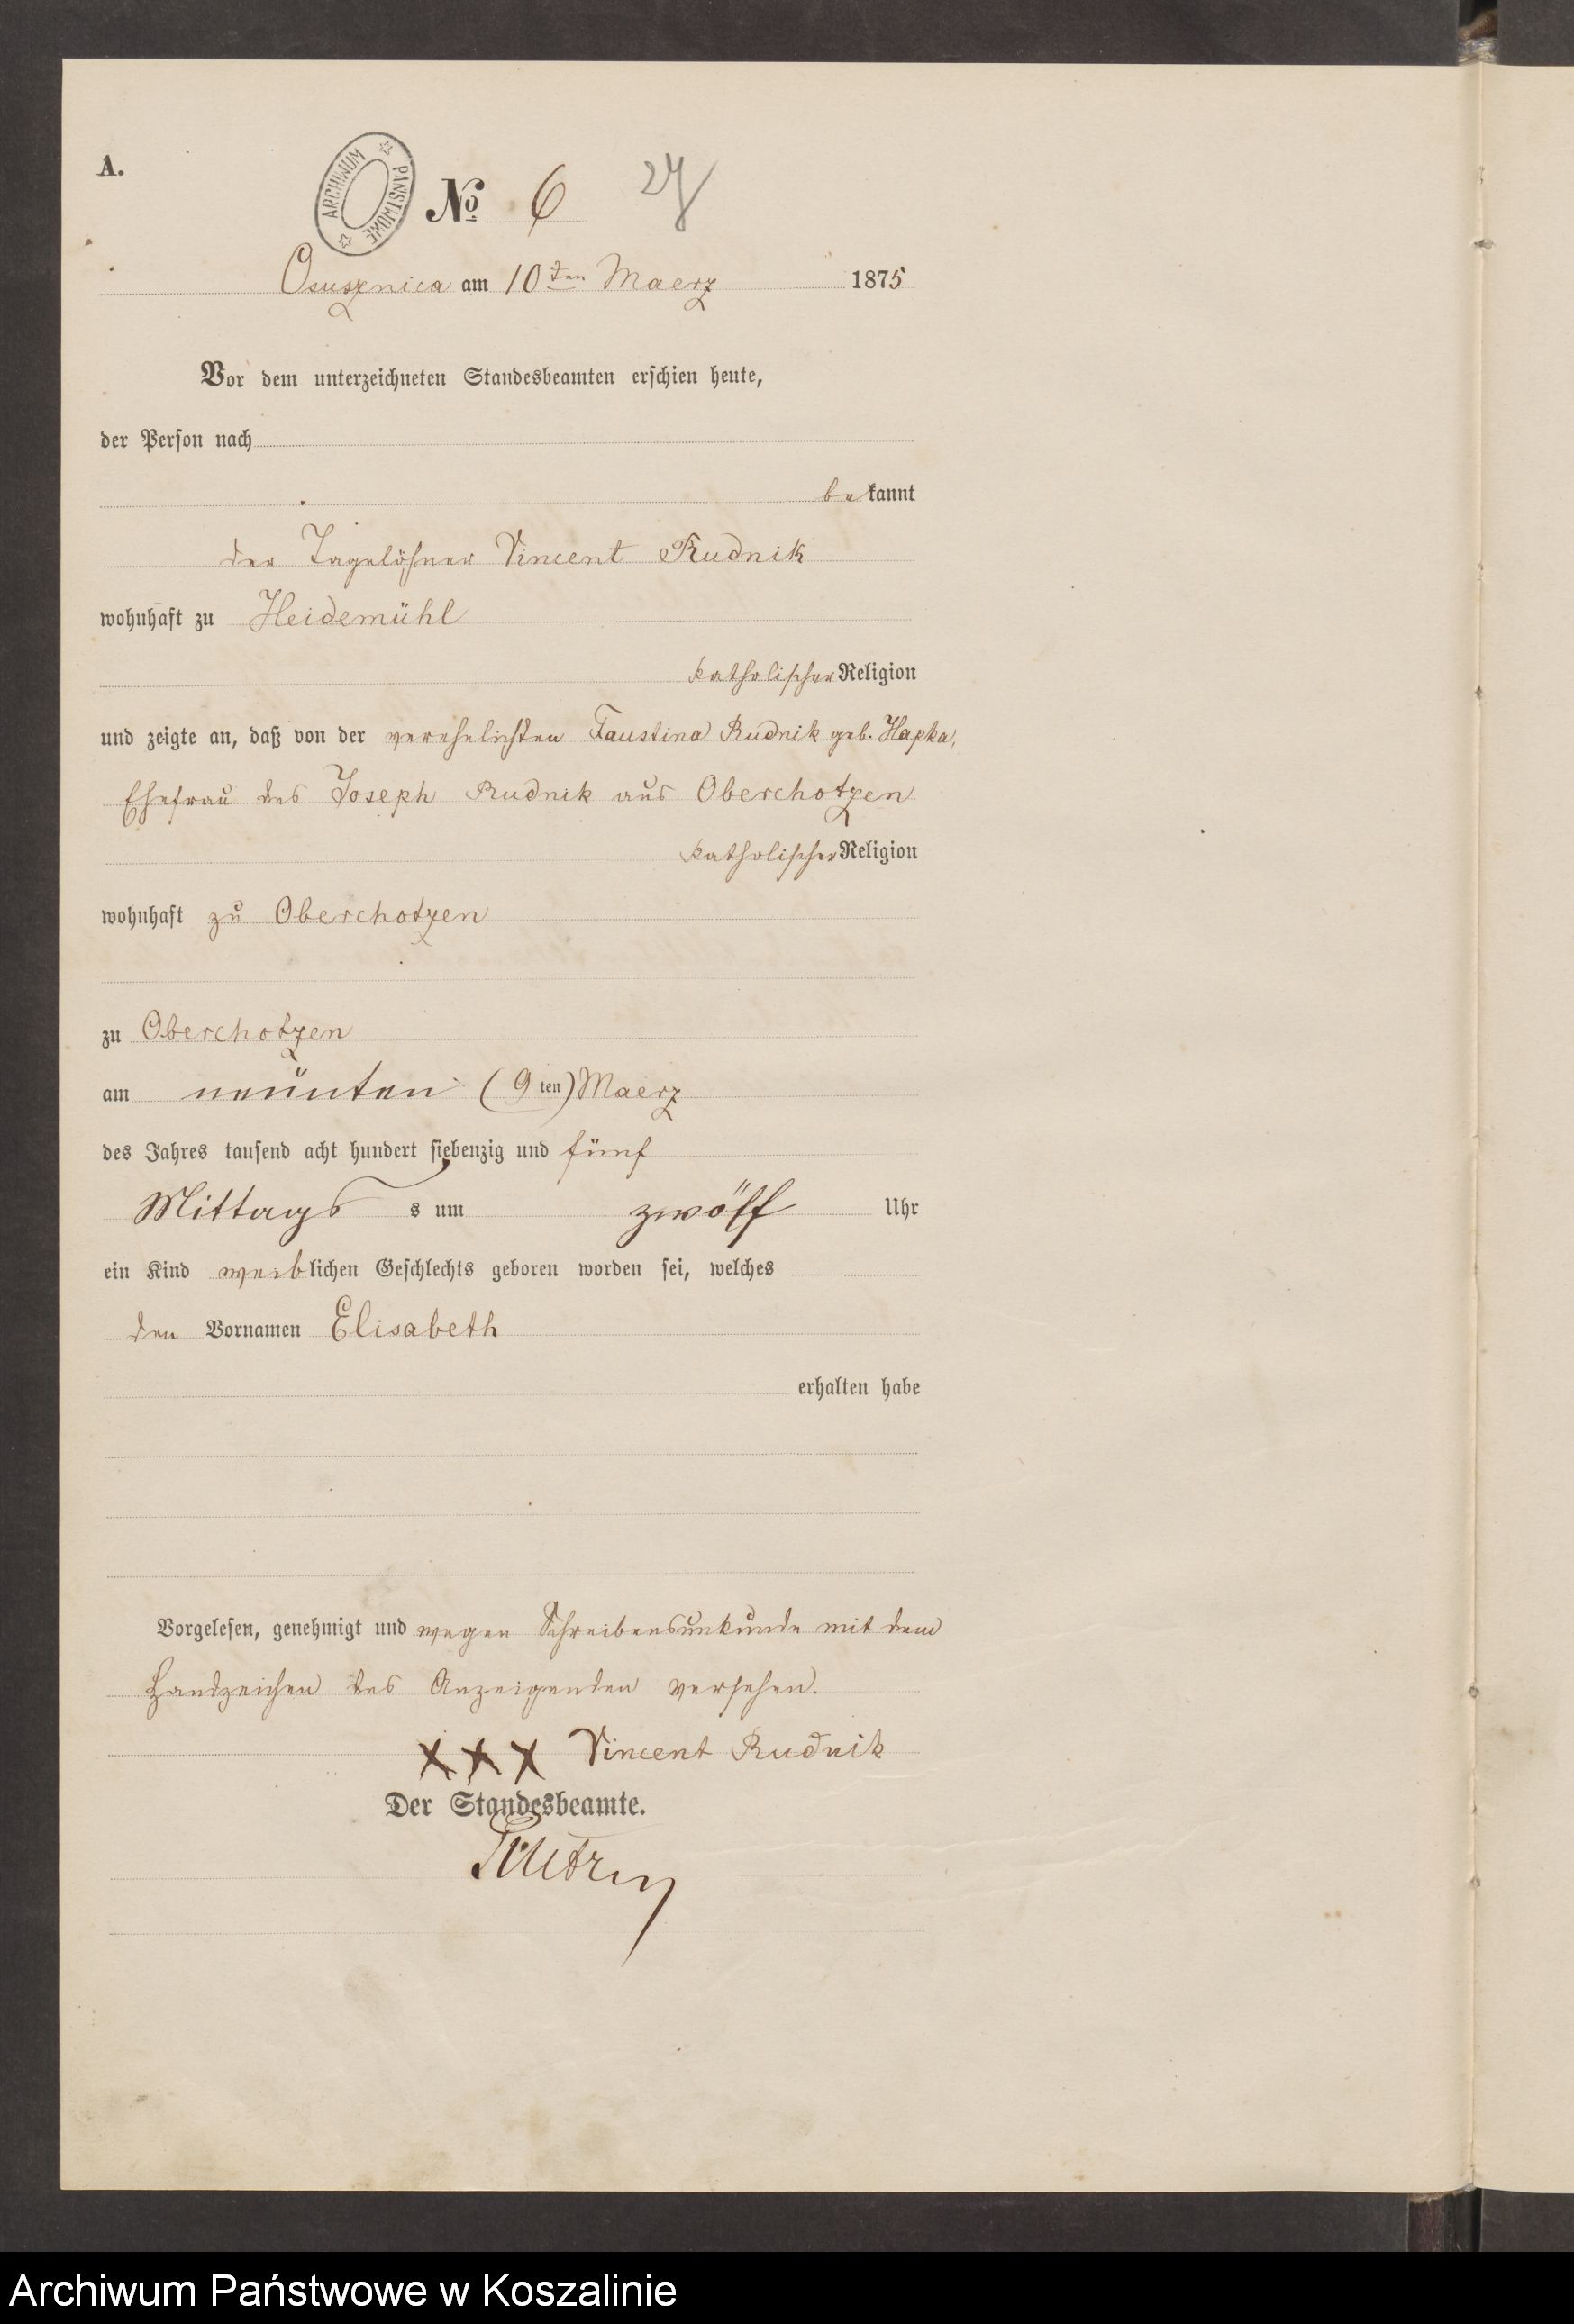 A.
ARCHIWUM PAŃSTWOWE
№ 6 27
Osusznica am 10ten Maerz 1875
Vor dem unterzeichneten Standesbeamten erschien heute,
der Person nach
bekannt
der Tagelöhner Vincent Rudnik
wohnhaft zu Heidemühl
katholischer Religion
und zeigte an, daß von der verehelichten Faustina Rudnik geb. Hapka,
Ehefrau des Joseph Rudnik aus Oberchotzen
katholischer Religion
wohnhaft zu Oberchotzen
zu Oberchotzen
am neunten (9ten) Maerz
des Jahres tausend acht hundert siebenzig und fünf
Mittags s um zwölf Uhr
ein Kind weiblichen Geschlechts geboren worden sei, welches
den Vornamen Elisabeth
erhalten habe
Vorgelesen, genehmigt und wegen Schreibensunkunde mit dem
Handzeichen des Anzeigenden versehen.
XXX Vincent Rudnik
Der Standesbeamte.
Archiwum Państwowe w Koszalinie